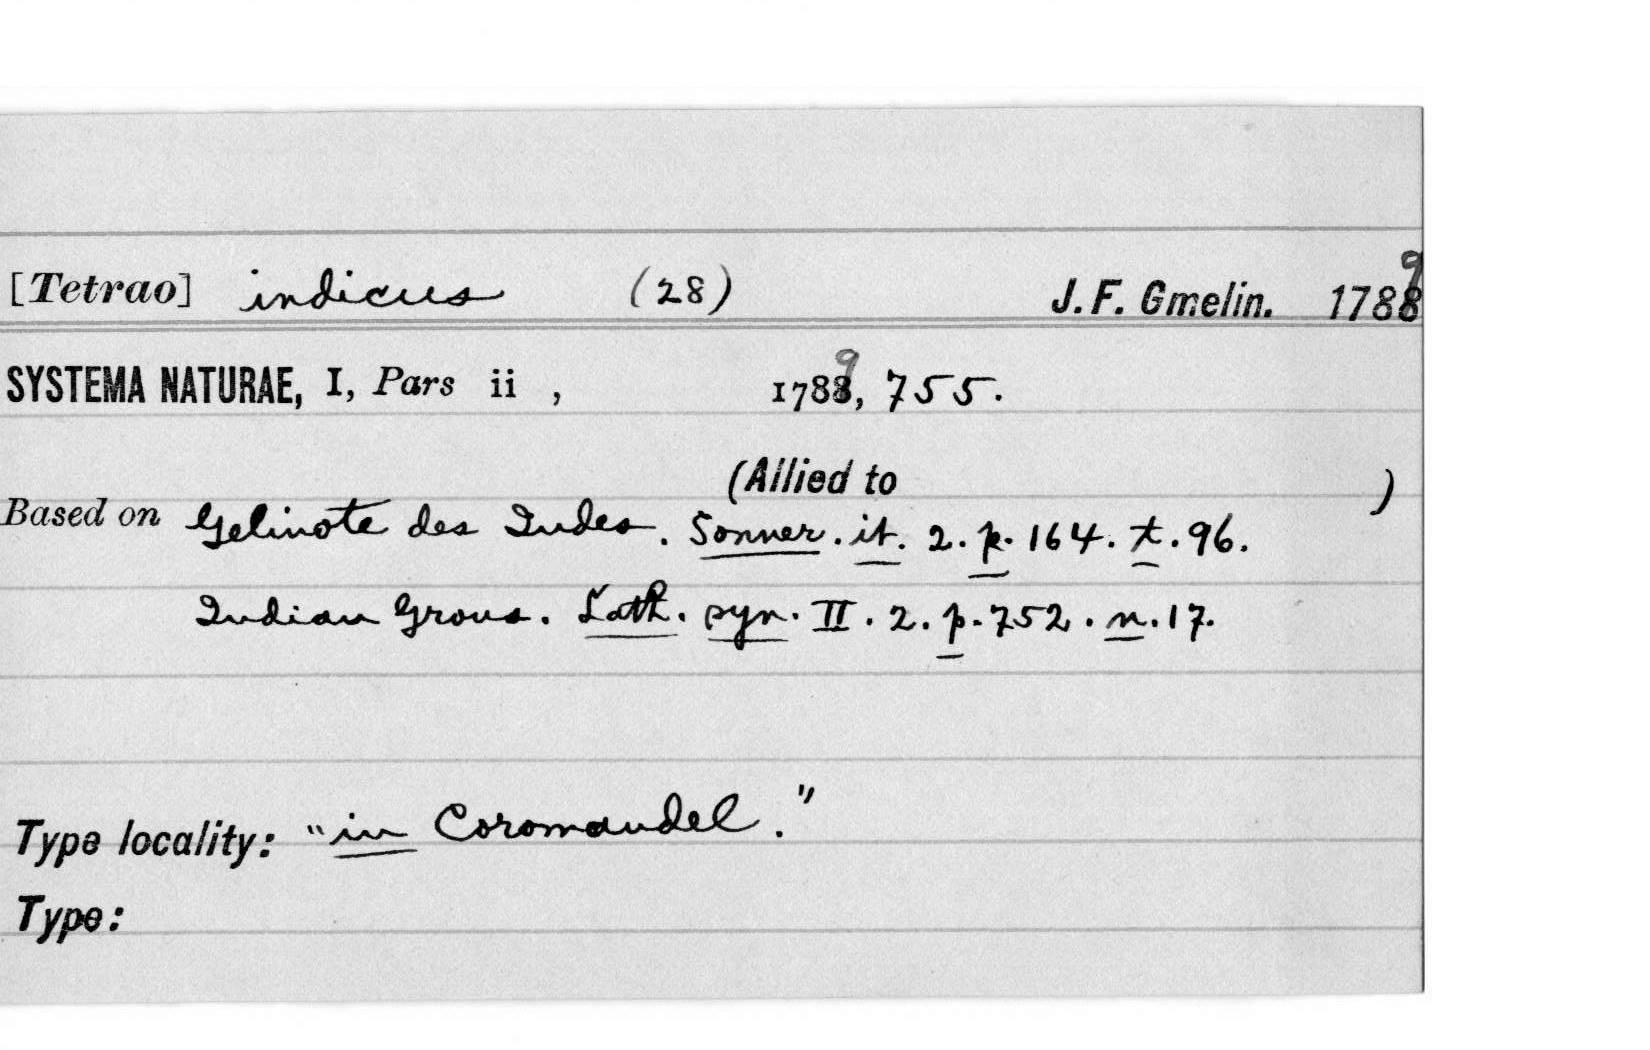 [Tetrao] indicus (28) J. F. Gmelin. 1789
SYSTEMA NATURAE, I, Pars ii , 1789, 755.
(Allied to )
Based on Gelinote des Indes. Sonner. it. 2. p. 164. t. 96.
Indian Grous. Lath. syn. II. 2. p. 752. n. 17.
Type locality: "in Coromandel."
Type: